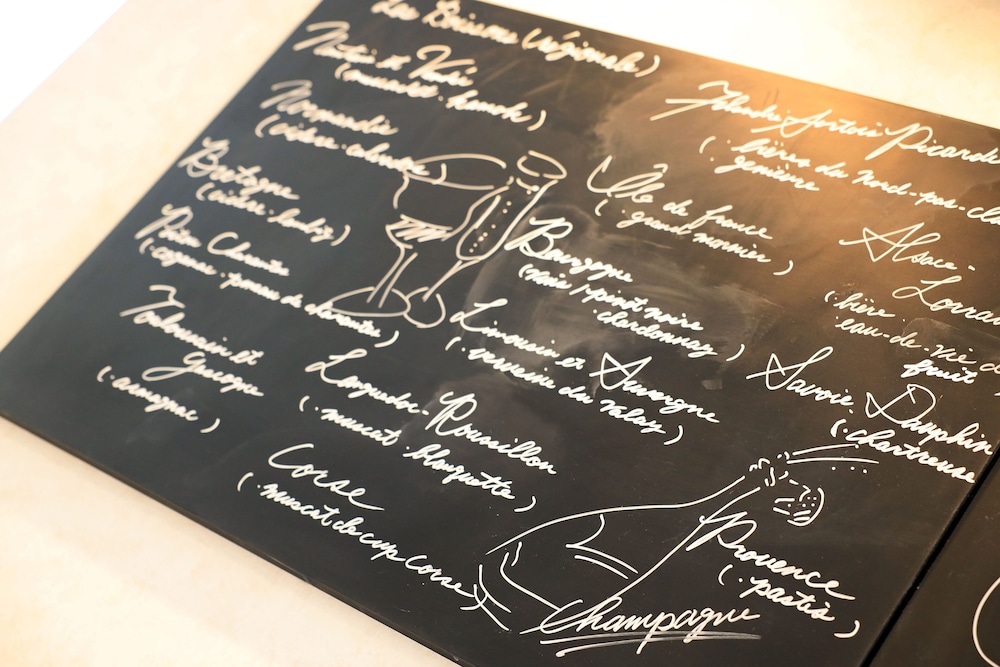 Les Boissons (régionale)
Nantes et Vendée
(muscadet.
Normandie
(cidre. calvados
Bretagne
(cidre.
Charentes
(cognac. pineau de charentes)
Toulousain et
Gascogne
(armagnac)
Languedoc-Roussillon
(. muscat. blanquette)
Corse
(. muscat de cap Corse)
Artois Picardie
(. bières du nord-pas-
genièvre
Île de france
(. grand marnier)
Bourgogne
pinot noire
chardonnay)
Limousin et Auvergne
(. verveine du Velay)
Alsace-
Lorraine
(. bière.
eau-de-vie d
fruit
Savoie. Dauphin
(. chartreuse
Provence
(. pastis)
Champagne